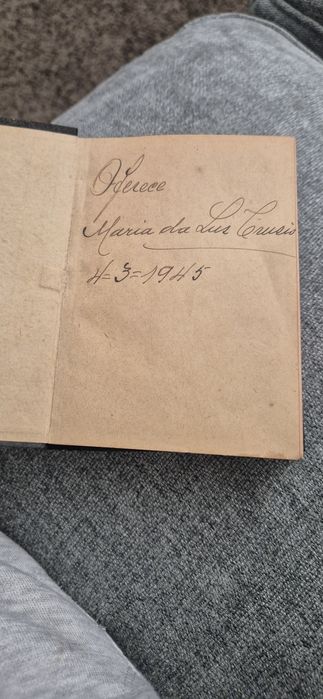 Oferece
Maria da Lus Crusis
4=3=1945